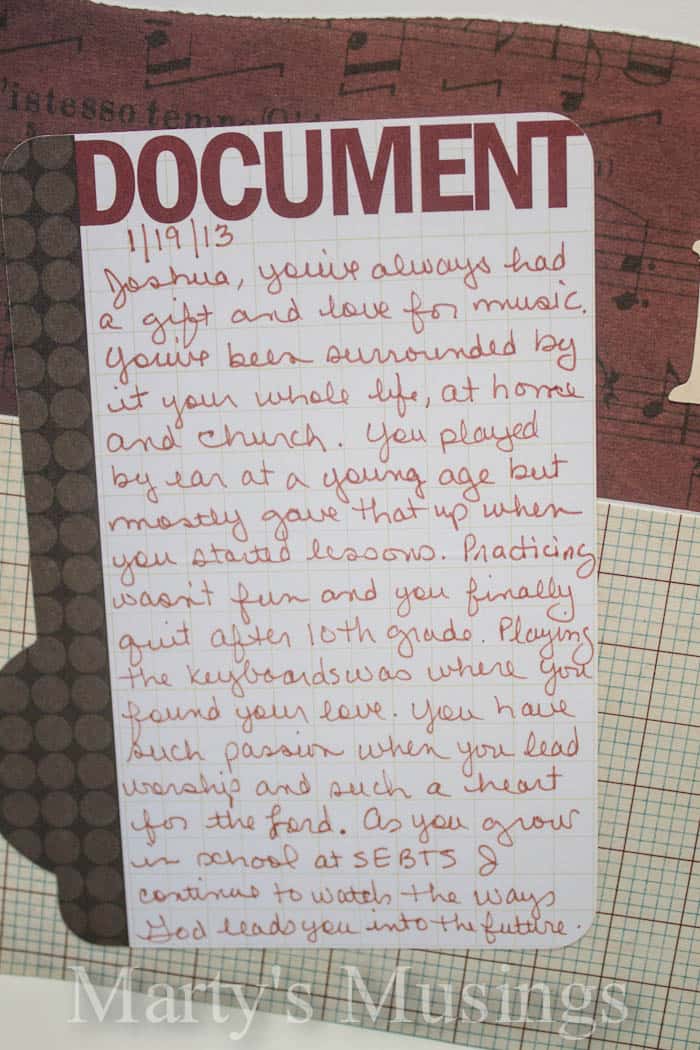 l'istesso tempo
DOCUMENT
1/19/13
Joshua, you've always had
a gift and love for music.
You've been surrounded by
it your whole life, at home
and church. You played
by ear at a young age but
mostly gave that up when
you started lessons. Practicing
wasn't fun and you finally
quit after 10th grade. Playing
the keyboards was where you
found your love. You have
such passion when you lead
worship and such a heart
for the Lord. As you grow
in school at SEBTS I
continue to watch the ways
God leads you into the future.
Marty's Musings